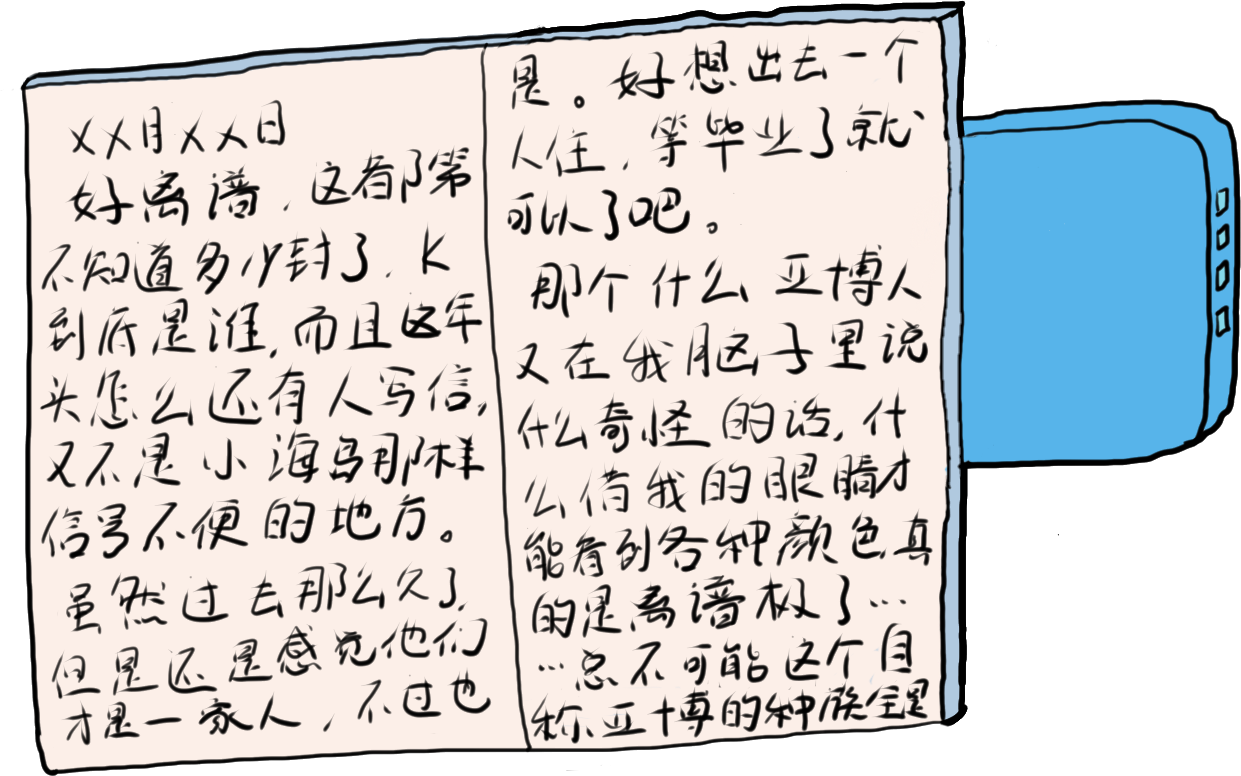 XX月XX日
好离谱，这都第
不知道多少封了，K
到底是谁，而且这年
头怎么还有人写信，
又不是小海马那样
信号不便的地方。
虽然过去那么久了，
但是还是感觉他们
才是一家人，不过也
是。好想出去一个
人住，等毕业了就
可以了吧。
那个什么亚博人
又在我脑子里说
什么奇怪的话，什
么借我的眼睛才
能看到各种颜色真
的是离谱极了…
…总不可能这个自
称亚博的种族全是